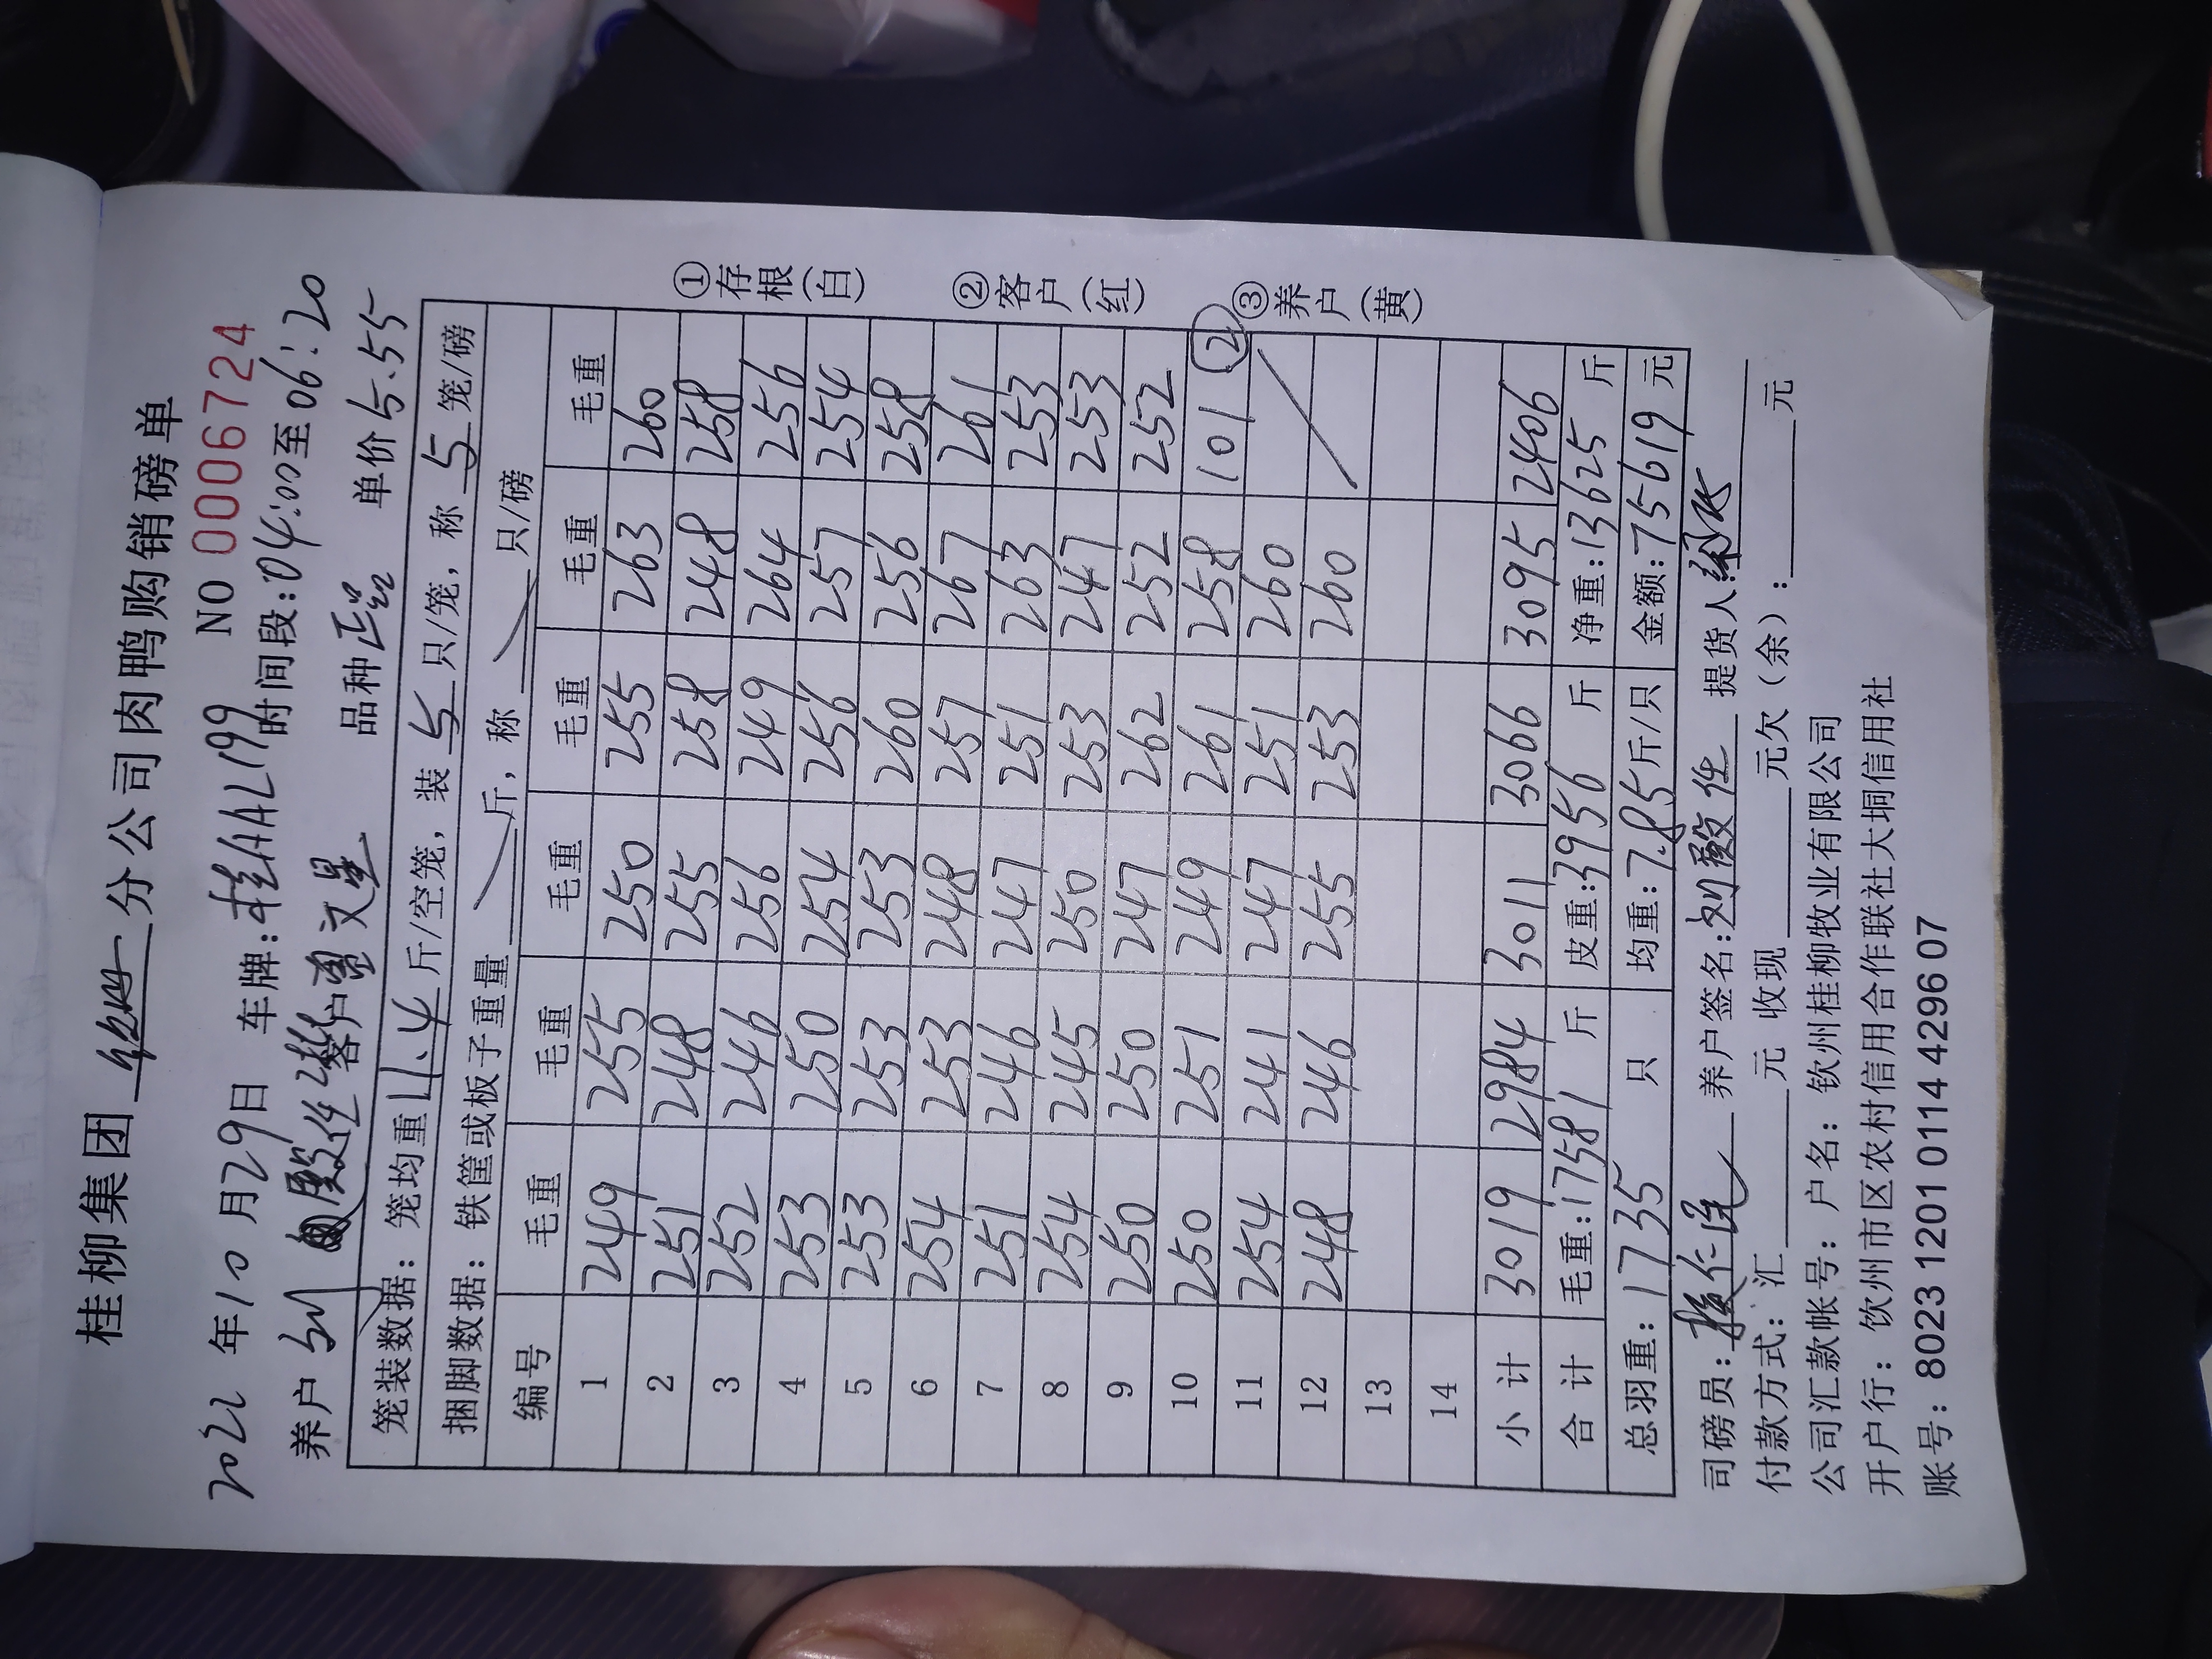 桂柳集团 分公司肉鸭购销磅单
2022 年 10 月 29 日 车牌: 桂AAL199 NO 0006724
时间段: 04:00 至 06:20
养户 刘殿仕 客户 文星 品种 正品 单价 5.55
笼装数据: 笼均重 11.4 斤/空笼, 装 5 只/笼, 称 5 笼/磅
捆脚数据: 铁筐或板子重量 斤, 称 只/磅
编号 毛重 毛重 毛重 毛重 毛重 毛重
1 249 255 250 255 263 260
2 251 248 255 258 248 258
3 252 246 256 249 264 256
4 253 250 254 256 257 254
5 253 253 253 260 256 258
6 254 253 248 257 267 261
7 251 246 247 251 263 253
8 254 245 250 253 247 253
9 250 250 247 262 252 252
10 250 251 249 261 258 101 ②
11 254 241 247 251 260
12 248 246 255 253 260
13
14
小计 3019 2984 3011 3066 3095 2406
合计 毛重: 17581 斤 皮重: 3956 斤 净重: 13625 斤
总羽重: 1735 只 均重: 7.85 斤/只 金额: 75619 元
①存根(白)
②客户(红)
③养户(黄)
司磅员: 养户签名: 刘殿仕 提货人:
付款方式: 汇 元 收现 元欠(余): 元
公司汇款帐号: 户名: 钦州桂柳牧业有限公司
开户行: 钦州市区农村信用合作联社大垌信用社
账号: 8023 1201 0114 4296 07